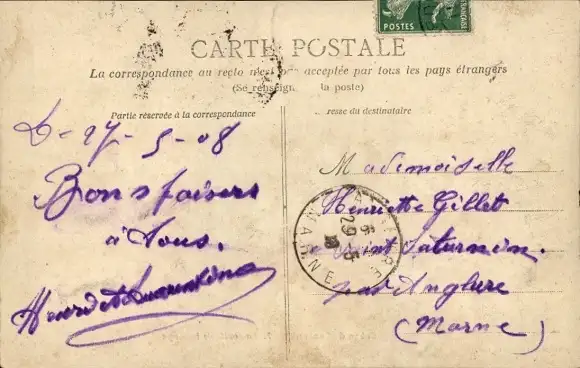 FRANÇAISE
POSTES
CARTE POSTALE
La correspondance au recto n'est pas acceptée par tous les pays étrangers
(Se renseigner la poste)
Partie réservée à la correspondance
resse du destinataire
27-5-08
Bons baisers
à tous.
Henri et
Mademoiselle
Henriette Gillet
à Saint Saturnin.
par Anglure
(Marne)
29-5
MARNE